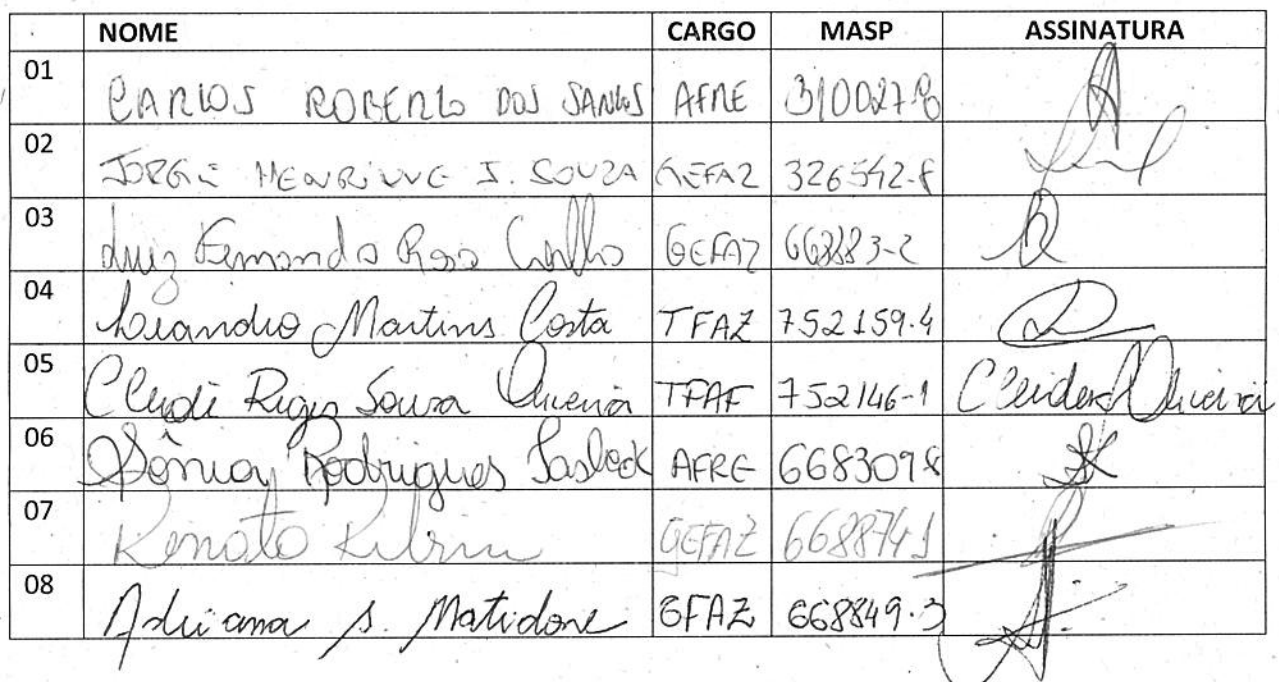 NOME CARGO MASP ASSINATURA
01 CARLOS ROBERTO DOS SANTOS AFRE 310027-8
02 JORGE HENRIQUE J. SOUZA GEFAZ 326542-8
03 Luiz Fernando Rosa Coelho GEFAZ 668883-2
04 Leandro Martins Costa TFAZ 752159.4
05 Cleide Souza Oliveira TFAF 752146-1 Cleide Oliveira
06 Sônia Rodrigues AFRE 6683098
07 Renato GEFAZ 6688741
08 Adriana S. Matidone GFAZ 668849.3